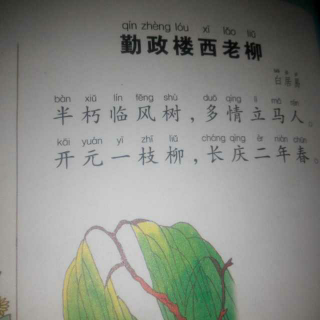 qín zhèng lóu xī lǎo liǔ
勤政楼西老柳
白居易
bàn xiǔ lín fēng shù duō qíng lì mǎ rén
半朽临风树，多情立马人。
kāi yuán yì zhī liǔ cháng qìng èr nián chūn
开元一枝柳，长庆二年春。